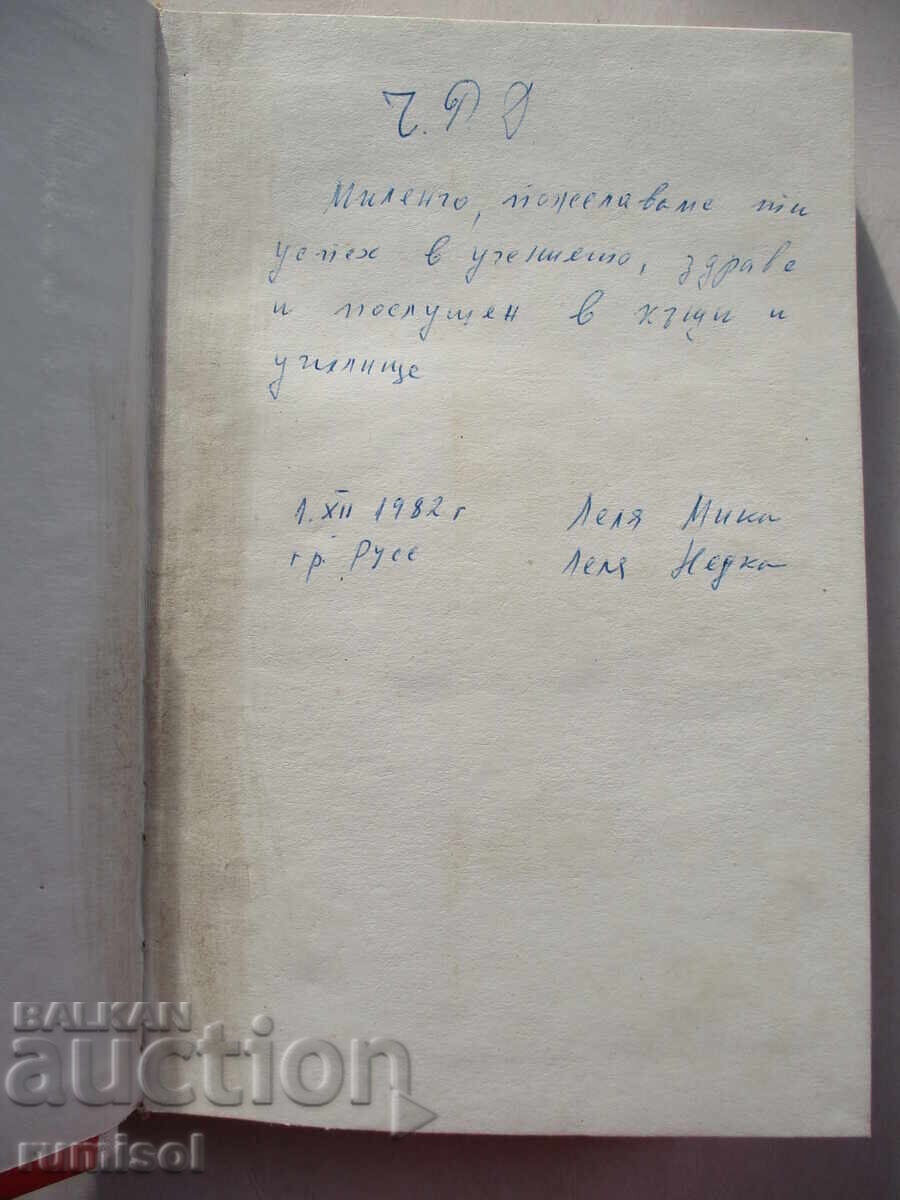 Ч.Р.Д
Миленчо, пожелаваме ти
успех в учението, здраве
и послушен в къщи и
училище
1. XII 1982 г Леля Мика
гр. Русе Леля Недка
BALKAN
auction
rumisol